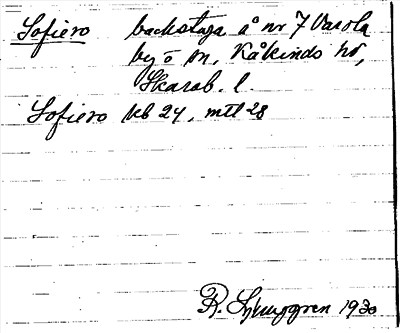 Sofiero backstuga å nr 7 Varola
by o sn, Kåkinds hd,
Skarab. l.
Sofiero kb 24, mtl 28
R. Ljunggren 1930